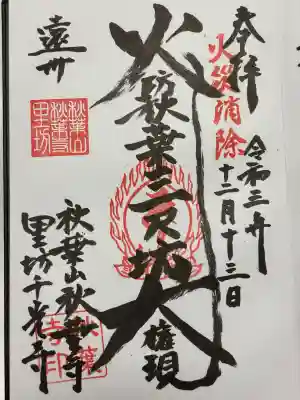 奉拝
火災消除
令和三年
十二月十三日
火
防
秋葉三尺坊
大
権現
遠州
秋葉山
秋葉寺
里坊
秋葉山秋葉寺
里坊千光寺